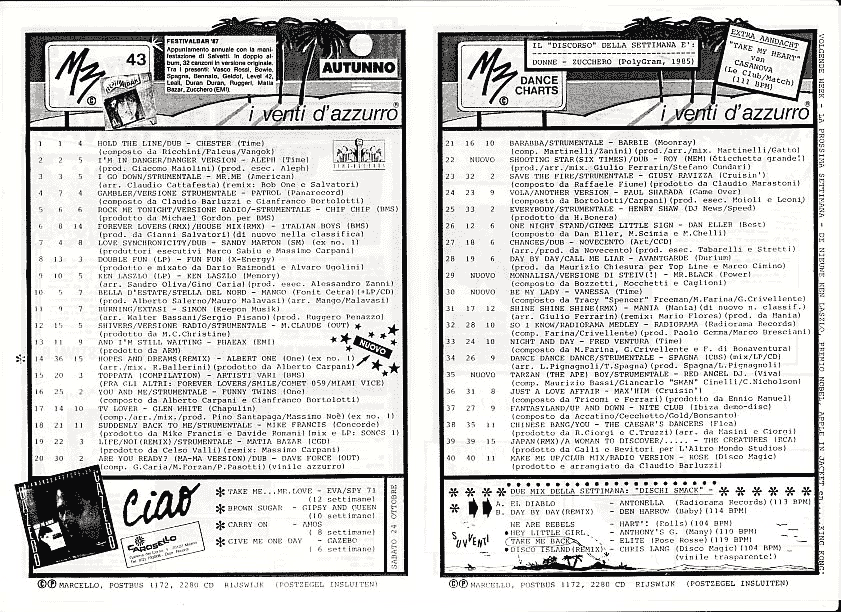 43
FESTIVALBAR '87
Appuntamento annuale con la mani-
festazione di Salvetti. In doppio al-
bum, 32 canzoni in versione originale.
Tra i presenti: Vasco Rossi, Bowie,
Spagna, Bennato, Geldof, Level 42,
Leali, Duran Duran, Ruggeri, Matia
Bazar, Zucchero (EMI).
AUTUNNO
i venti d'azzurro®
1 1 4 HOLD THE LINE/DUB - CHESTER (Time)
(composto da Ricchini/Falcus/Vangok)
2 2 5 I'M IN DANGER/DANGER VERSION - ALEPH (Time)
(prod. Giacomo Maiolini) (prod. esec. Aleph)
3 3 5 I GO DOWN/STRUMENTALE - MR.ME (American)
(arr. Claudio Cattafesta) (remix: Rob One e Salvatori)
4 7 4 GAMBLER/VERSIONE STRUMENTALE - PATROL (Panarecord)
(composto da Claudio Barluzzi e Gianfranco Bortolotti)
5 6 6 ROCK ME TONIGHT/VERSIONE RADIO/-STRUMENTALE - CHIP CHIP (BMS)
(prodotto da Michael Gordon per BMS)
6 8 14 FOREVER LOVERS(RMX)/HOUSE MIX(RMX) - ITALIAN BOYS (BMS)
(prod. da Gianni Salvatori) (di nuovo nella classifica)
7 4 8 LOVE SYNCHRONICITY/DUB - SANDY MARTON (SM) (ex no. 1)
(produttori esecutivi Marco Gabiu e Massimo Carpani)
8 13 3 DOUBLE FUN (LP) - FUN FUN (X-Energy)
(prodotto e mixato da Dario Raimondi e Alvaro Ugolini)
9 10 5 KEN LASZLO (LP) - KEN LASZLO (Memory)
(arr. Sandro Oliva/Gino Caria) (prod. esec. Alessandro Zanni)
10 5 7 BELLA D'ESTATE/STELLA DEL NORD - MANGO (Fonit Cetra) (+LP/CD)
(prod. Alberto Salerno/Mauro Malavasi) (arr. Mango/Malavasi)
11 9 7 BURNING/EXTASI - SIMON (Keepon Musik)
(arr. Walter Bassani/Sergio Pisano) (prod. Ruggero Penazzo)
12 15 5 SHIVERS/VERSIONE RADIO/STRUMENTALE - M.CLAUDE (OUT)
(prodotto da M.C.Christine)
13 11 9 AND I'M STILL WAITING - PHAEAX (EMI)
(prodotto da ARM)
14 36 15 HOPES AND DREAMS(REMIX) - ALBERT ONE (One) (ex no. 1)
(arr./mix. R.Ballerini) (prodotto da Alberto Carpani)
15 20 3 TOPPATA (COMPILATION) - ARTISTI VARI (BMS)
(FRA GLI ALTRI: FOREVER LOVERS/SMILE/COMET 059/MIAMI VICE)
16 25 2 YOU AND ME/STRUMENTALE - FUNNY TWINS (One)
(composto da Alberto Carpani e Gianfranco Bortolotti)
17 14 10 TV LOVER - GLEN WHITE (Chapulin)
(comp./arr./mix./prod. Pino Santapaga/Massimo Noè) (ex no. 1)
18 21 11 SUDDENLY BACK TO ME/STRUMENTALE - MIKE FRANCIS (Concorde)
(prodotto da Mike Francis e Davide Romani) (mix e LP: SONGS 1)
19 22 3 LIFE/NOI(REMIX)/STRUMENTALE - MATIA BAZAR (CGD)
(prodotto da Celso Valli) (remix: Massimo Carpani)
20 30 2 ARE YOU READY? (MA-HA VERSION)/DUB - DAVE FORCE (OUT)
(comp. G.Caria/M.Forzan/P.Pasotti) (vinile azzurro)
NUOVO
Ciao
CAROSELLO
* TAKE ME...ME.LOVE - EVA/SPY 71
(12 settimane)
* BROWN SUGAR - GIPSY AND QUEEN
(10 settimane)
* CARRY ON - AMOS
( 8 settimane)
* GIVE ME ONE DAY - GAZEBO
( 6 settimane)
SABATO 24 OTTOBRE
©Ⓟ MARCELLO, POSTBUS 1172, 2280 CD RIJSWIJK (POSTZEGEL INSLUITEN)
IL "DISCORSO" DELLA SETTIMANA E':
DONNE - ZUCCHERO (PolyGram, 1985)
DANCE
CHARTS
EXTRA AANDACHT
"TAKE MY HEART"
van
CASANOVA
(Le Club/Match)
(111 BPM)
i venti d'azzurro®
21 16 10 BARABBA/STRUMENTALE - BARBIE (Moonray)
(comp. Martinelli/Zanini) (prod./arr./mix. Martinelli/Gatto)
22 NUOVO SHOOTING STAR(SIX TIMES)/DUB - ROY (MEM) (Etichetta grande!)
(prod./arr./mix. Giulio Ferrarin/Stefano Cundari)
23 32 2 SAVE THE FIRE/STRUMENTALE - GIUSY RAVIZZA (Cruisin')
(composto da Raffaele Fiume) (prodotto da Claudio Marastoni)
24 23 9 VOLA/ANOTHER VERSION - PAUL SHARADA (Game Over)
(composto da Bortolotti/Carpani) (prod. esec. Moioli e Leoni)
25 33 2 EVERYBODY/STRUMENTALE - HENRY SHAW (DJ News/Speed)
(prodotto da H.Bonera)
26 12 6 ONE NIGHT STAND/GIMME LITTLE SIGN - DAN ELLER (Best)
(composto da Dan Eller, M.Scimia e M.Chelli)
27 18 6 CHANGES/DUB - NOVECENTO (Art/CCD)
(arr./prod. da Novecento) (prod. esec. Tabarelli e Stretti)
28 19 6 DAY BY DAY/CALL ME LIAR - AVANTGARDE (Durium)
(prod. da Maurizio Chiesura per Top Line e Marco Cimino)
29 NUOVO MONNALISA/VERSIONE DI STEIV(!) - MR.BLACK (Power)
(composto da Bozzetti, Mocchetti e Caglioni)
30 NUOVO BE MY LADY - VANESSA (Time)
(composto da Tracy "Spencer" Freeman/M.Farina/G.Crivellente)
31 17 12 SHINE SHINE SHINE(RMX) - MANIA (Mania) (di nuovo n classif.)
(arr. Giulio Ferrarin) (remix: Mario Flores) (prod. da Mania)
32 28 10 SO I KNOW/RADIORAMA MEDLEY - RADIORAMA (Radiorama Records)
(comp. Farina/Crivellente) (prod. Paolo Gemma/Marco Bresciani)
33 24 10 NIGHT AND DAY - FRED VENTURA (Time)
(composto da M.Farina, G.Crivellente e F. di Bonaventura)
34 26 9 DANCE DANCE DANCE/STRUMENTALE - SPAGNA (CBS) (mix/LP/CD)
(arr. L.Pignagnoli/T.Spagna) (prod. Spagna/L.Pignagnoli)
35 NUOVO TARZAN (THE APE) BOY/STRUMENTALE - RED ANGEL DJ. (Viva)
(comp. Maurizio Bassi/Giancarlo "SHAN" Cinelli/C.Nicholson)
36 31 8 JUST A LOVE AFFAIR - MAX'HIM (Cruisin')
(composto da Tricomi e Ferrari) (prodotto da Ennio Manuel)
37 27 9 FANTASYLAND/UP AND DOWN - NITE CLUB (Ibiza demo-disc)
(composto da Accatino/Cecchetto/Gold/Bonsanto)
38 35 11 CHINESE BANG/YOU - THE CAESAR'S DANCERS (Flea)
(prodotto da R.Ciorgi e C.Truzzi) (arr. da Masini e Giorgi)
39 39 15 JAPAN(RMX)/A WOMAN TO DISCOVER/..... - THE CREATURES (ECA)
(prodotto da Galli e Bevitori per L'Altro Mondo Studios)
40 40 11 MAKE ME UP/CLUB MIX/RADIO VERSION - ROSE (Disco Magic)
(prodotto e arrangiato da Claudio Barluzzi)
DUE MIX DELLA SETTIMANA: "DISCHI SMACK" -
A. EL DIABLO - ANTONELLA (Radiorama Records) (113 BPM)
B. DAY BY DAY(REMIX) - DEN HARROW (Baby) (114 BPM)
SOUVENTI
WE ARE REBELS - HART'! (Rolls) (104 BPM)
HEY LITTLE GIRL - ANTHONY'S G. (Many) (119 BPM)
(TAKE ME BACK - ELITE (Pose Rosse) (119 BPM)
DISCO ISLAND(REMIX) - CHRIS LANG (Disco Magic) (104 BPM)
(vinile trasparente!)
©Ⓟ MARCELLO, POSTBUS 1172, 2280 CD RIJSWIJK (POSTZEGEL INSLUITEN)
VOLGENDE WEEK- LA PROSSIMA SETTIMANA -